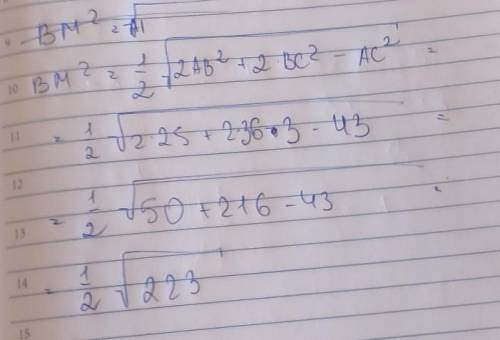 9 BM² = √A
10 BM² = 1/2 √2AB² + 2·BC² - AC² =
11 = 1/2 √2·25 + 2·36·3 - 43 =
12
13 = 1/2 √50 + 216 - 43 =
14 = 1/2 √223
15